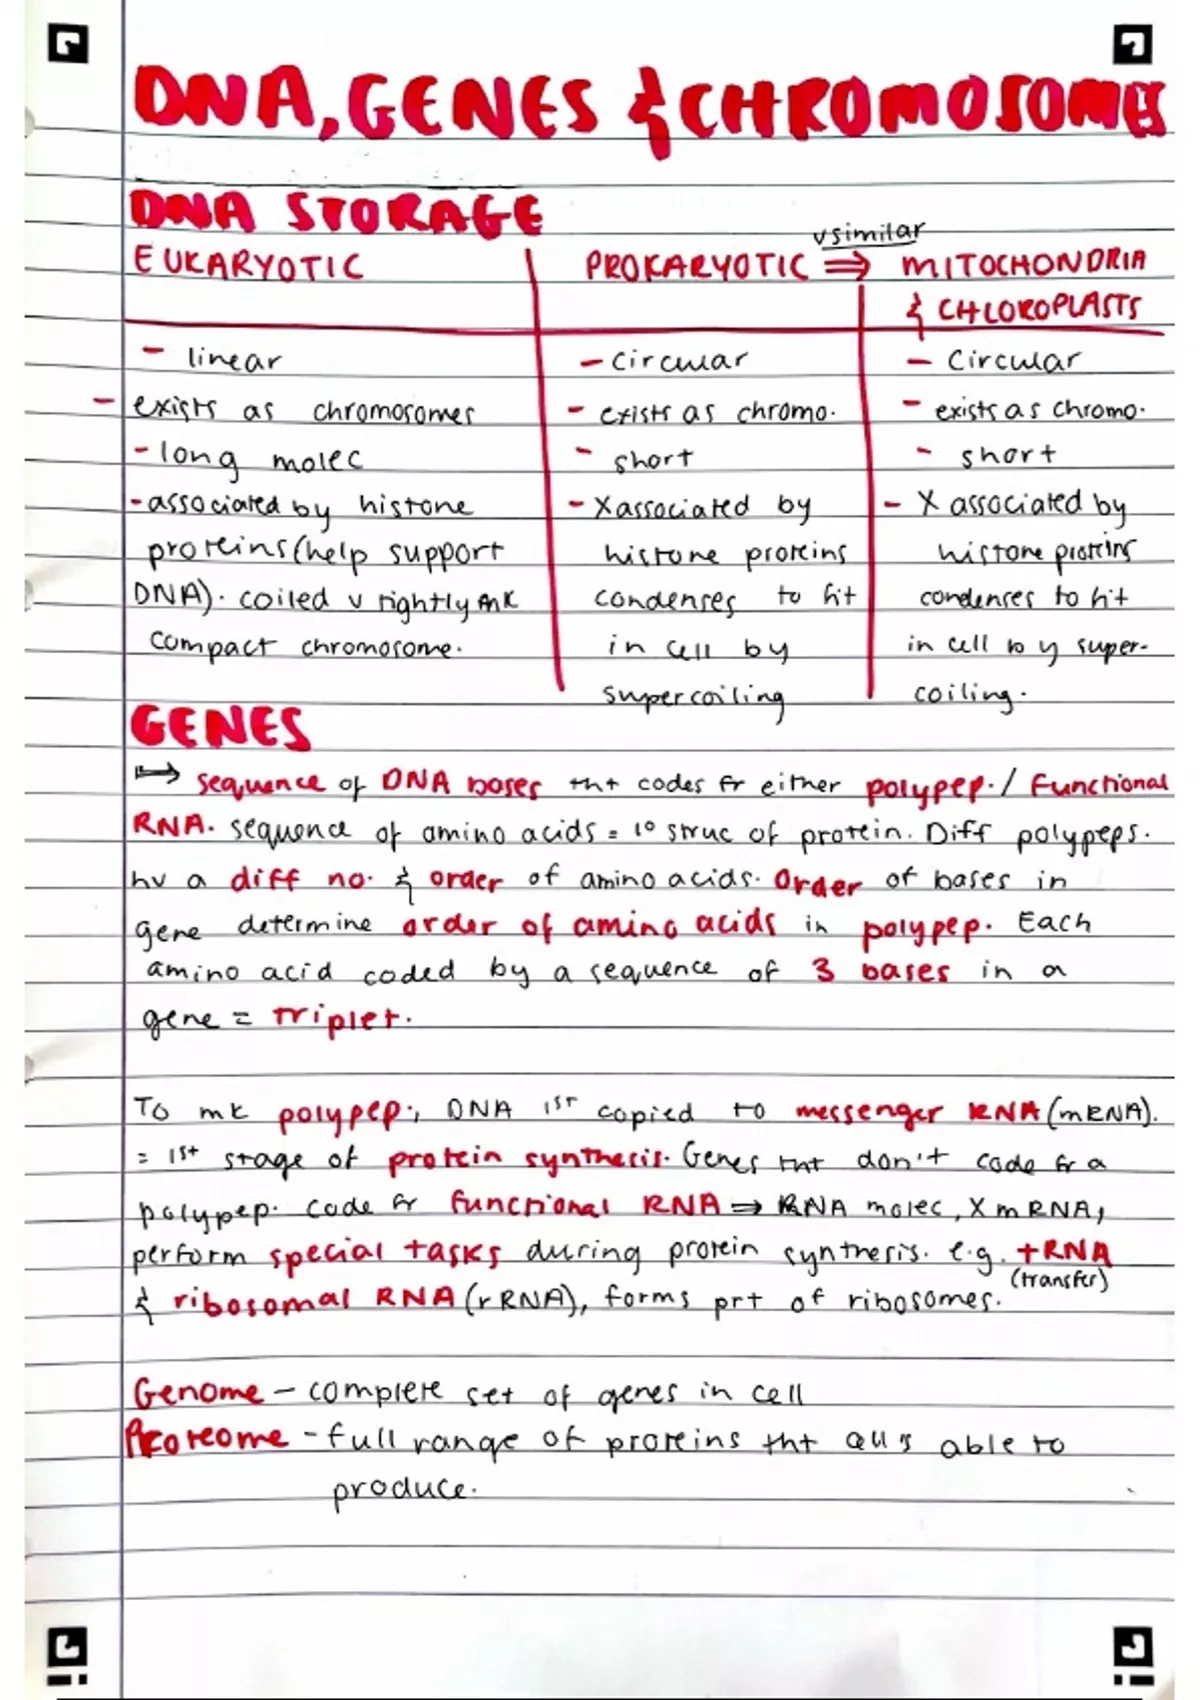 DNA, GENES & CHROMOSOMES
DNA STORAGE
v similar
EUKARYOTIC
PROKARYOTIC ⇒ MITOCHONDRIA
& CHLOROPLASTS
- linear
- exists as chromosomes
- long molec
- associated by histone
proteins (help support
DNA). coiled v tightly mk
compact chromosome.
- circular
- exists as chromo.
- short
- X associated by
histone proteins
condenses to fit
in cell by
supercoiling
- circular
- exists as chromo.
- short
- X associated by
histone proteins
condenses to fit
in cell by super-
coiling.
GENES
↦ sequence of DNA bases tht codes fr either polypep. / functional
RNA. sequence of amino acids = 1° struc of protein. Diff polypeps.
hv a diff no. & order of amino acids. Order of bases in
gene determine order of amino acids in polypep. Each
amino acid coded by a sequence of 3 bases in a
gene = triplet.
To mk polypep., DNA 1st copied to messenger RNA (mRNA).
= 1st stage of protein synthesis. Genes tht don't code fr a
polypep. code fr functional RNA ⇒ RNA molec, X mRNA,
perform special tasks during protein synthesis. e.g. tRNA
(transfer)
& ribosomal RNA (rRNA), forms prt of ribosomes.
Genome - complete set of genes in cell
Proteome - full range of proteins tht cell is able to
produce.